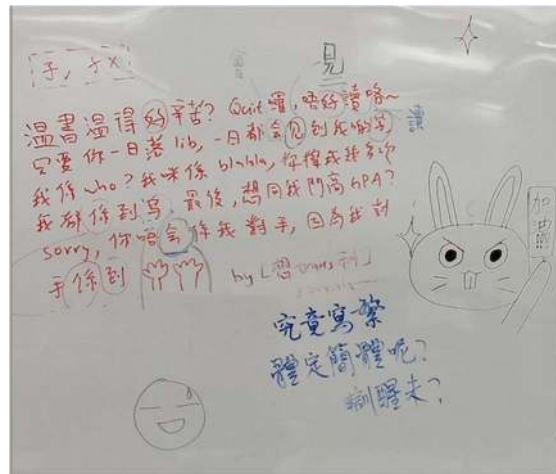 見
溫書溫得好辛苦? Quit 囉,唔好讀咯~
讀
只要你一日落 lib, 一日都会见到我
我係 who? 我咪係 blabla, 你擦我幾多次
我都係到寫, 最後, 想同我鬥高 GPA?
sorry, 你唔会係我對手, 因為我對
手係到
加油
究竟寫繁
體定簡體呢?
瞓醒未?